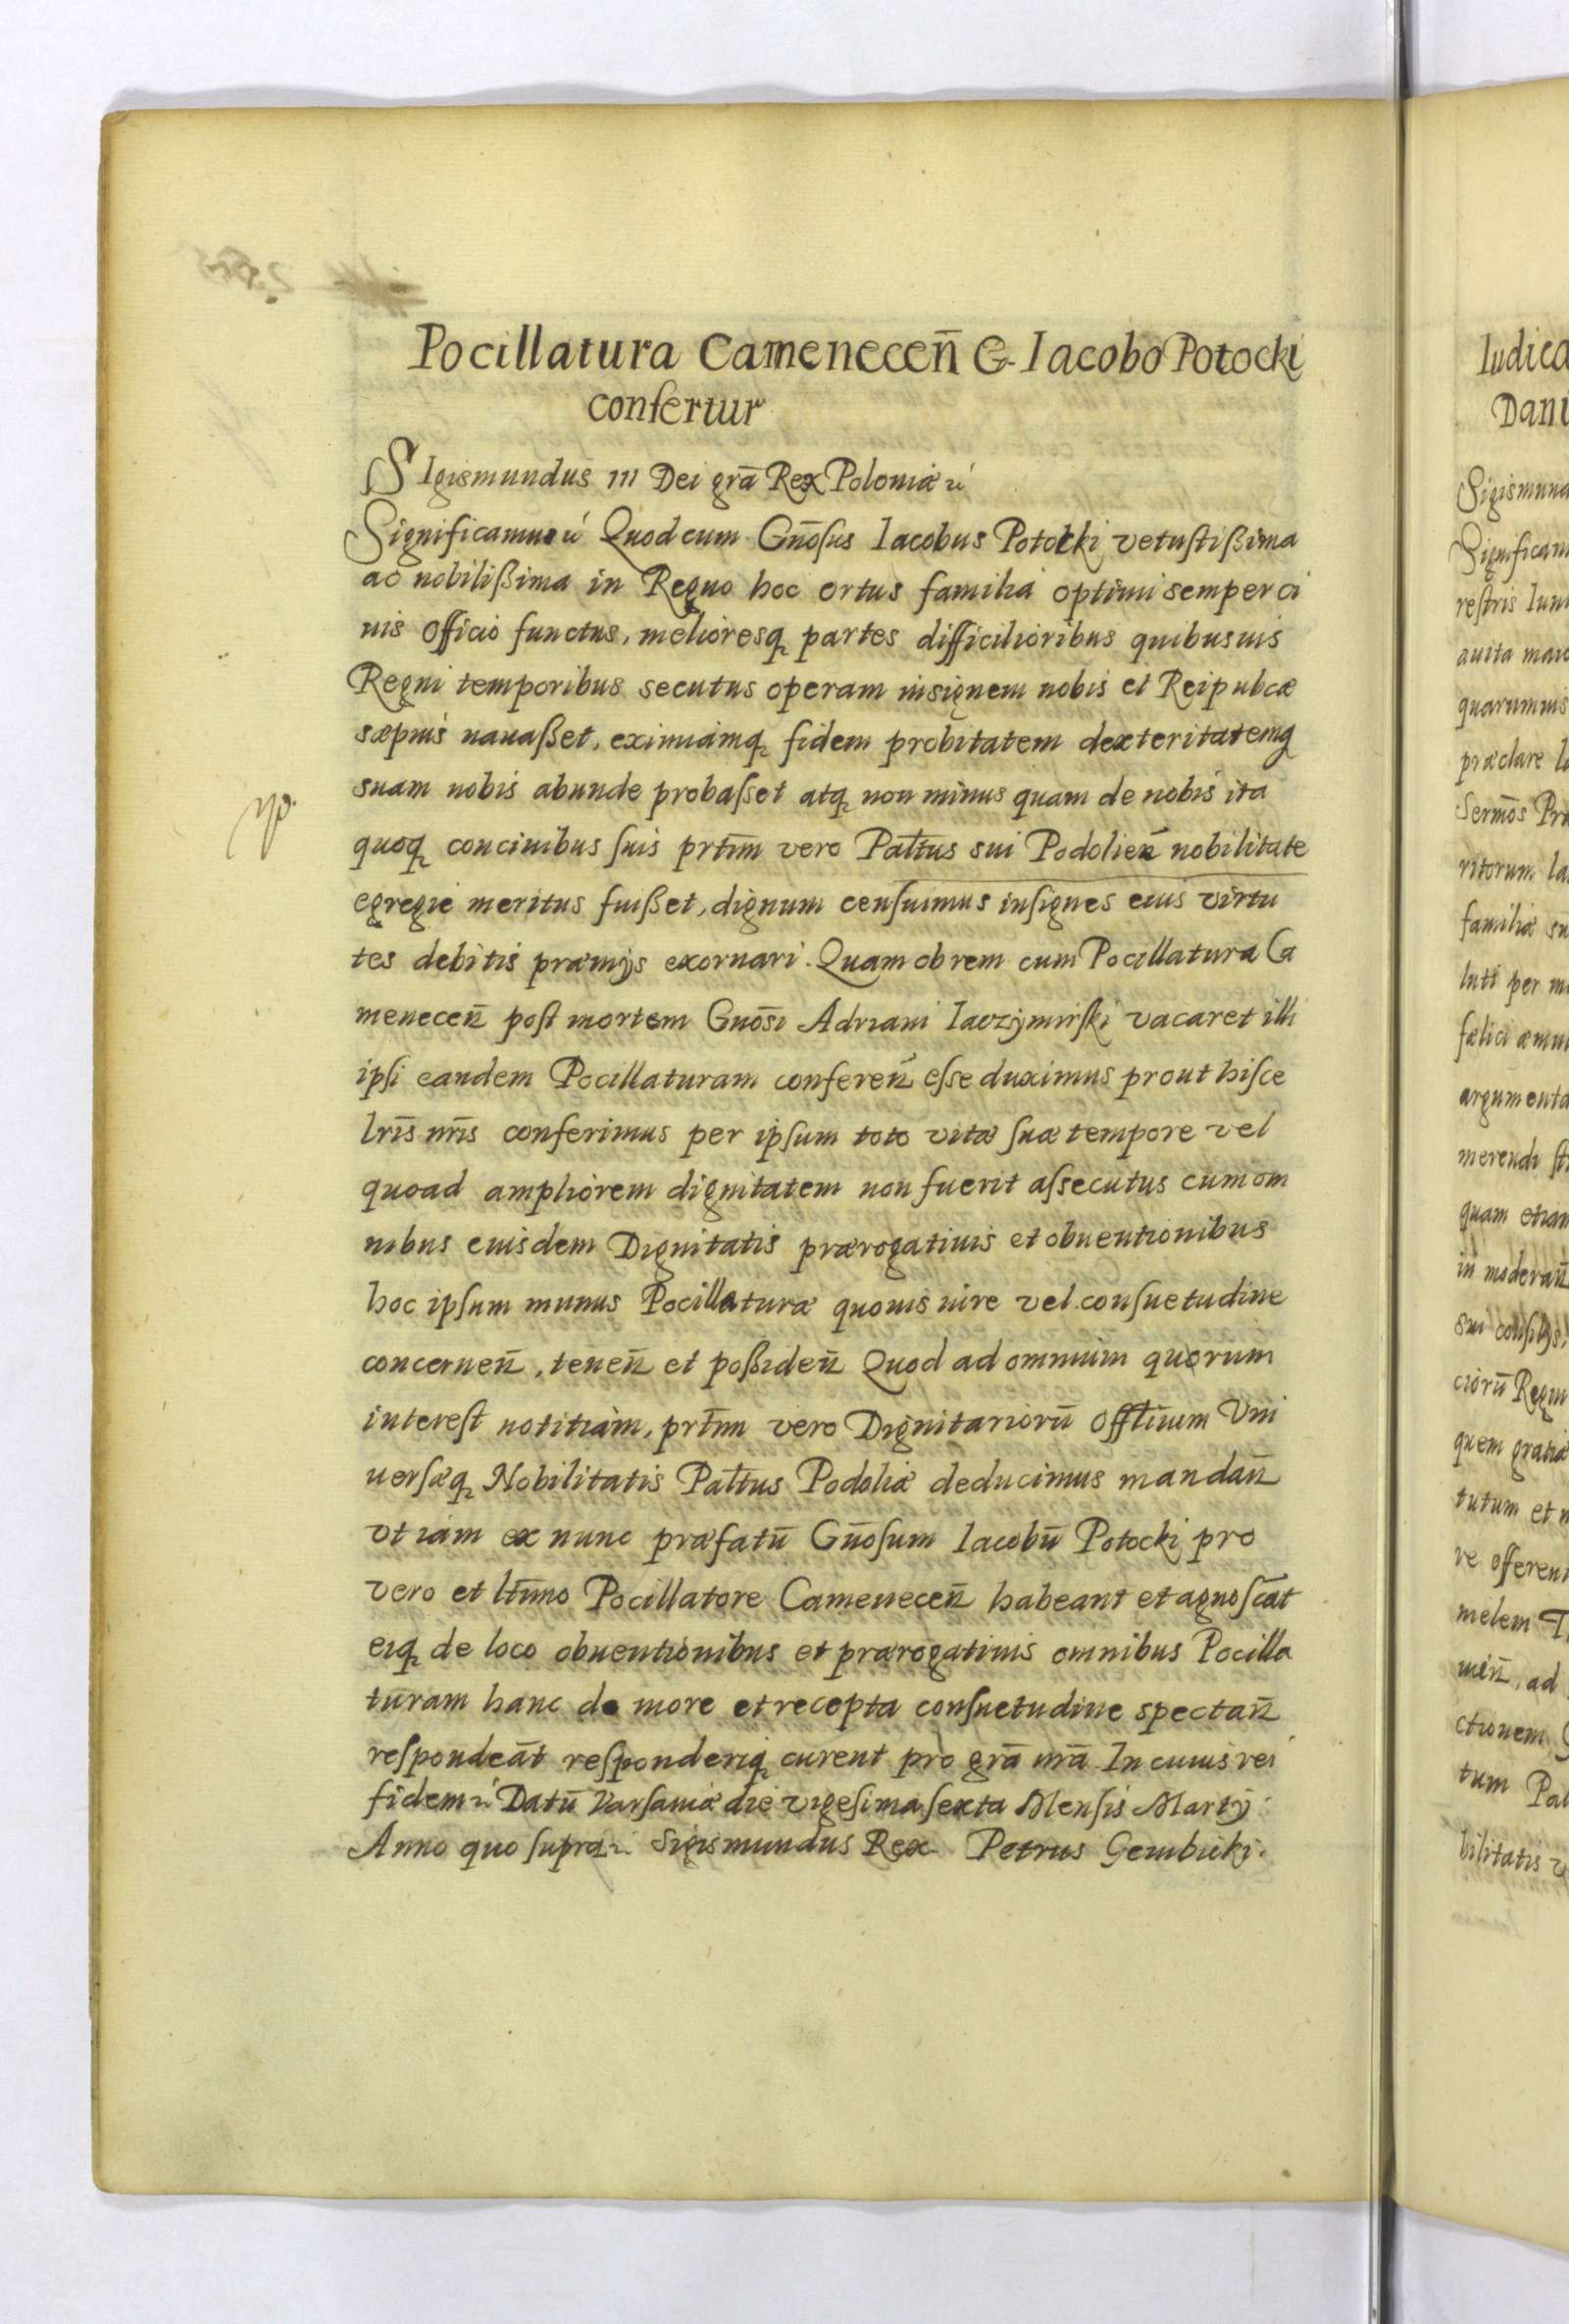 Pocillatura Camenecen̄ G. Iacobo Potocki
confertur
SIgismundus III Dei grā Rex Poloniæ
Significamus Quod cum Gn̄osus Iacobus Potocki vetustißima
ac nobilißima in Regno hoc ortus familia optimi semper ci
uis officio functus, melioresq partes difficilioribus quibusuis
Regni temporibus secutus operam insignem nobis et Reipubcæ
sæpius nauaßet, eximiamq fidem probitatem dexteritatemq
suam nobis abunde probasset atq non minus quam de nobis ita
quoq conciuibus suis prtīm vero Paltus sui Podolien̄ nobilitate
egregie meritus fuißet, dignum censuimus insignes eius virtu
tes debitis præmijs exornari. Quamobrem cum Pocillatura Ca
menecen̄ post mortem Gnōsi Adriani Iaczijmirski vacaret illi
ipsi eandem Pocillaturam conferen̄ esse duximus prout hisce
lrīs nrīs conferimus per ipsum toto vitæ suæ tempore vel
quoad ampliorem dignitatem non fuerit assecutus cum om
nibus eiusdem Dignitatis prærogatiuis et obuentionibus
hoc ipsum munus Pocillaturæ quouis iure vel consuetudine
concernen̄, tenen̄ et poßiden̄ Quod ad omnium quorum
interest notitiam, prtīm vero Dignitariorū Offlium Vni
uersæq Nobilitatis Paltus Podoliæ deducimus mandan̄
vt iam ex nunc præfatū Gn̄osum Iacobū Potocki pro
vero et ltīmo Pocillatore Camenecen̄ habeant et agnoscāt
eiq de loco obuentionibus et prærogatiuis omnibus Pocilla
turam hanc de more et recepta consuetudine spectan̄
respondeāt responderiq curent pro grā nrā In cuius rei
fidem Datū Varsauiæ die vigesima sexta Mensis Martij
Anno quo supra Sigismundus Rex Petrus Gembicki.
Iudica
Dani
Sigismund
Significam
restris
auita maio
quarumuis
præclare
Sermōs
ritorum
familiæ su
luti per
fælici æmu
argumenta
merendi
quam etiam
in moderan̄
sui consilijs,
ciorū Regni
quem gratiæ
tutum et
re offeren
melem
ad
ctionem
tum Pal
bilitatis